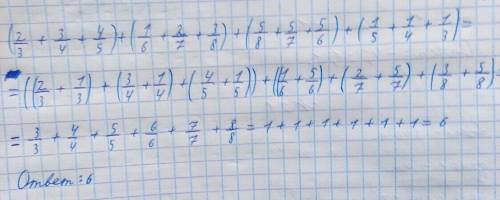 (2/3 + 3/4 + 4/5) + (1/6 + 2/7 + 3/8) + (5/8 + 5/7 + 5/6) + (1/5 + 1/4 + 1/3) =
= ((2/3 + 1/3) + (3/4 + 1/4) + (4/5 + 1/5)) + ((1/6 + 5/6) + (2/7 + 5/7) + (3/8 + 5/8)
= 3/3 + 4/4 + 5/5 + 6/6 + 7/7 + 8/8 = 1+1+1+1+1+1 = 6
Ответ: 6